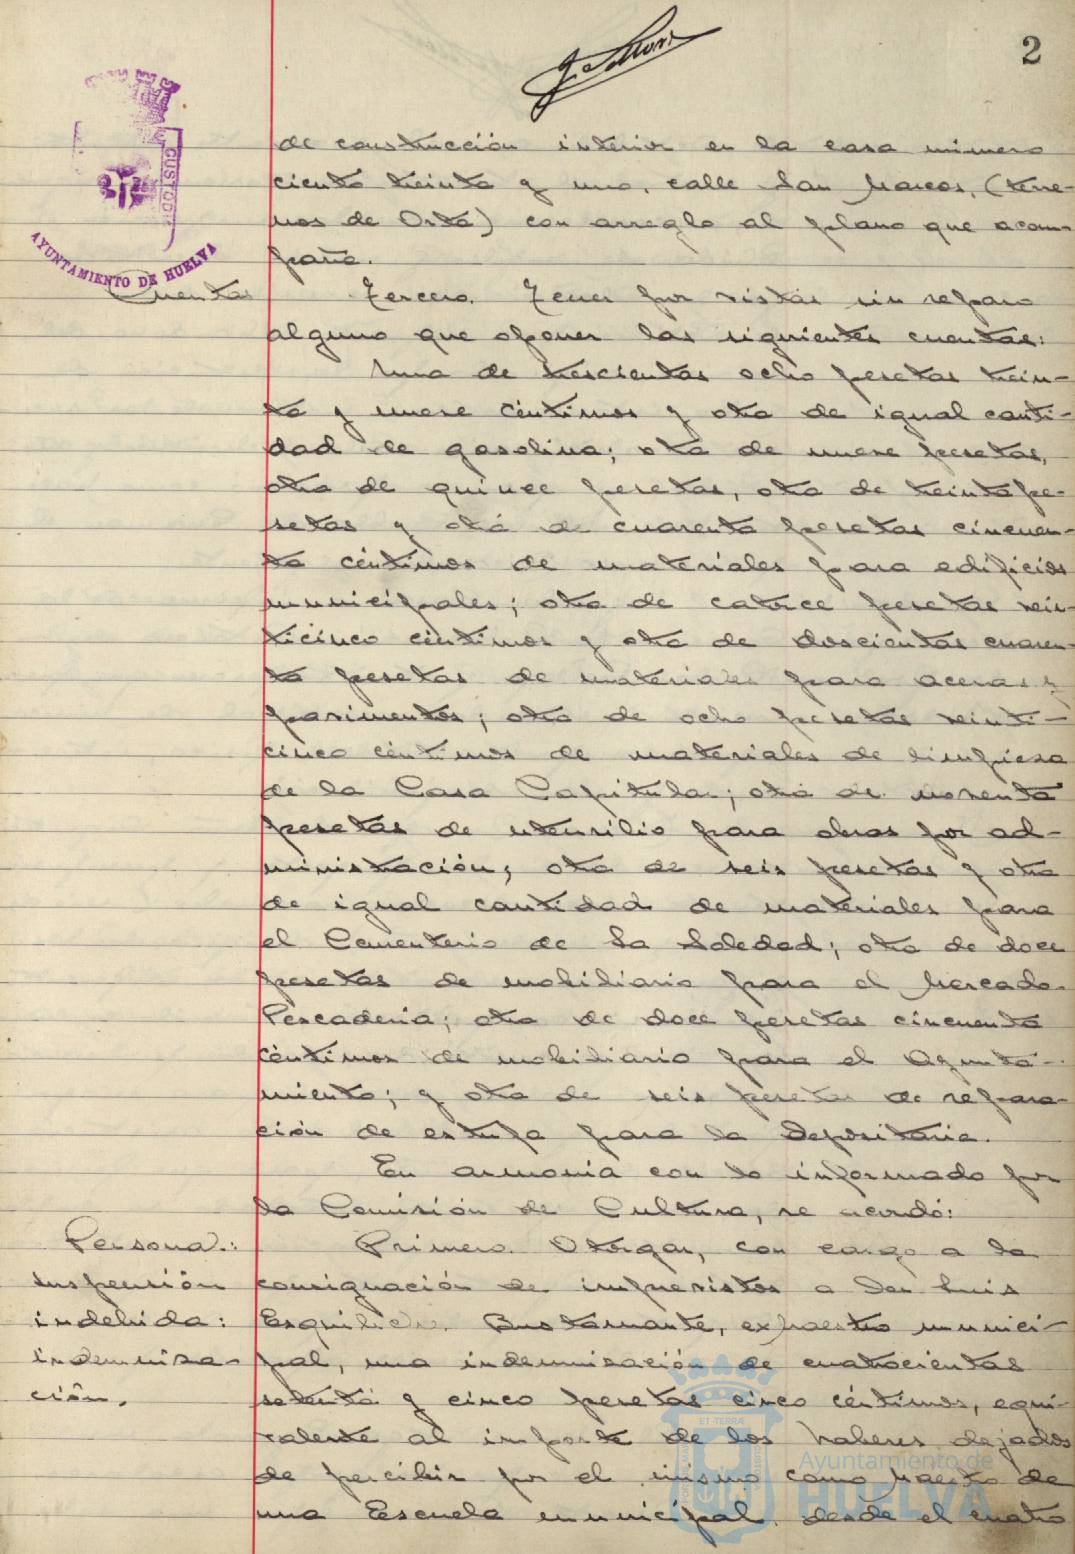 2
CUSTODI
AYUNTAMIENTO DE HUELVA
de construcción interior en la casa número
ciento treinta y uno, calle San Marcos, (terre-
nos de Orta) con arreglo al plano que acom-
paña.
Cuentas
Tercero. Tener por vistas sin reparo
alguno que oponer las siguientes cuentas:
Una de trescientas ocho pesetas trein-
ta y nueve céntimos y otra de igual canti-
dad de gasolina; otra de nueve pesetas,
otra de quince pesetas, otra de treinta pe-
setas y otra de cuarenta pesetas cincuen-
ta céntimos de materiales para edificios
municipales; otra de catorce pesetas vein-
ticinco céntimos y otra de doscientas cuaren-
ta pesetas de materiales para aceras y
pavimentos; otra de ocho pesetas veinti-
cinco céntimos de materiales de limpieza
de la Casa Capitular; otra de noventa
pesetas de utensilio para obras por ad-
ministración; otra de seis pesetas y otra
de igual cantidad de materiales para
el Cementerio de la Soledad; otra de doce
pesetas de mobiliario para el Mercado
Pescadería; otra de doce pesetas cincuenta
céntimos de mobiliario para el Ayunta-
miento; y otra de seis pesetas de repara-
ción de estufa para la Depositaría.
En armonía con lo informado por
la Comisión de Cultura, se acordó:
Personal:
suspensión
indebida:
indemniza-
ción.
Primero. Otorgar, con cargo a la
consignación de imprevistos a Don Luis
Bustamante, exmaestro munici-
pal, una indemnización de cuatrocientas
setenta y cinco pesetas cinco céntimos, equi-
valente al importe de los haberes dejados
de percibir por el mismo como Maestro de
una Escuela municipal, desde el cuatro
ET TERRÆ
Ayuntamiento de
HUELVA